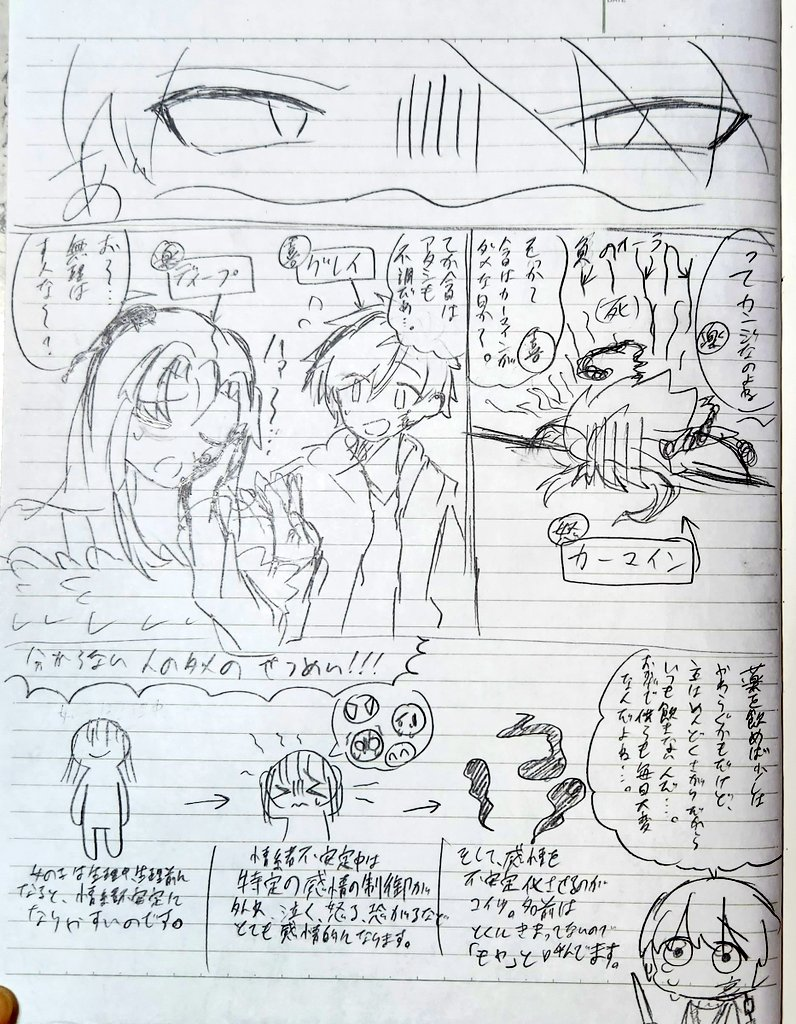 DATE
あ゛
って カンジなのよね
楽
負のオーラ
(死)
今日はカーマインが
ダメな日か〜。
喜
怒
カーマイン
てか今日は
不調だね…。
喜
グレイ
ディープ
お〜…
無理は
すんな〜?
分からない人のタメの せつめい!!!
女の子は生理中、生理前に
なると、情緒不安定に
なりやすいのです。
情緒不安定中は
特定の感情の制御が
泣く、怒る、恐がるなど
とても感情的になります。
そして、感情を
不安定化させるのが
コイツ。名前は
とくにきまってないので
「モヤ」と呼んでます。
薬を飲めば少しは
かわるかもだけど、
主はめんどくさがりだから
いつも飲まないんだ…。
おかげで僕らも毎日大変
なんだよね…。